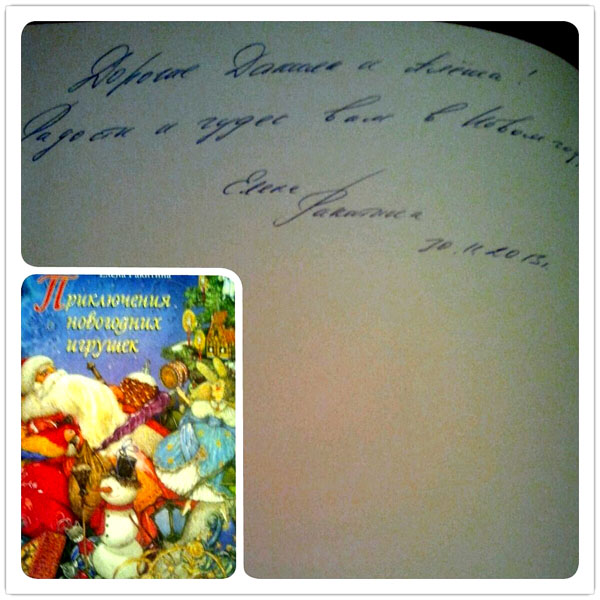 Дорогие Данила и Алёша!
Радости и чудес вам в Новом году,
Елена
Ракитина
30.11.2013г.
Елена Ракитина
Приключения
новогодних
игрушек